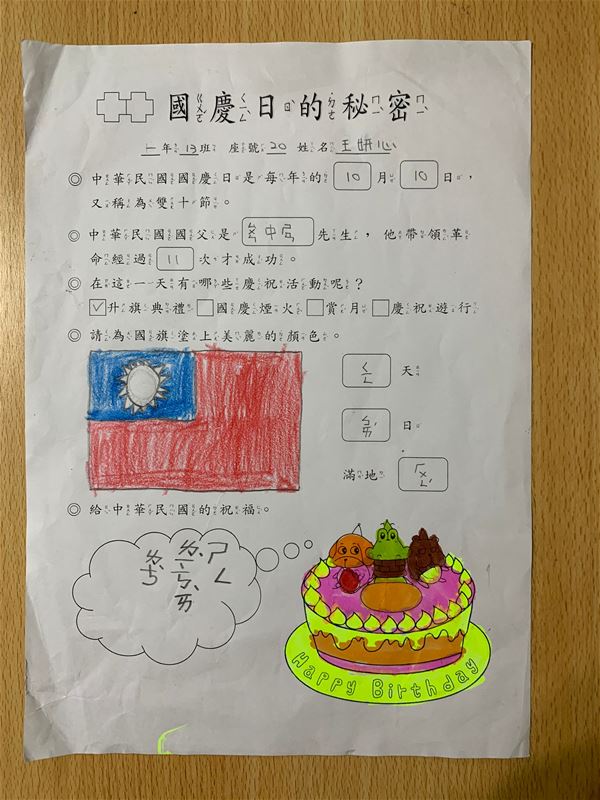 國慶日的秘密
一年13班 座號20 姓名王妍心
◎ 中華民國國慶日是每年的10月10日，
又稱為雙十節。
◎ 中華民國國父是 先生，他帶領革
命經過11次才成功。
◎ 在這一天有哪些慶祝活動呢？
☑升旗典禮□國慶煙火□賞月□慶祝遊行
◎ 請為國旗塗上美麗的顏色。
ㄑㄧㄥ 天
ㄅㄞˊ 日
滿地 ㄏㄨㄥˊ
◎ 給中華民國的祝福。
ㄕㄥ
Happy Birthday